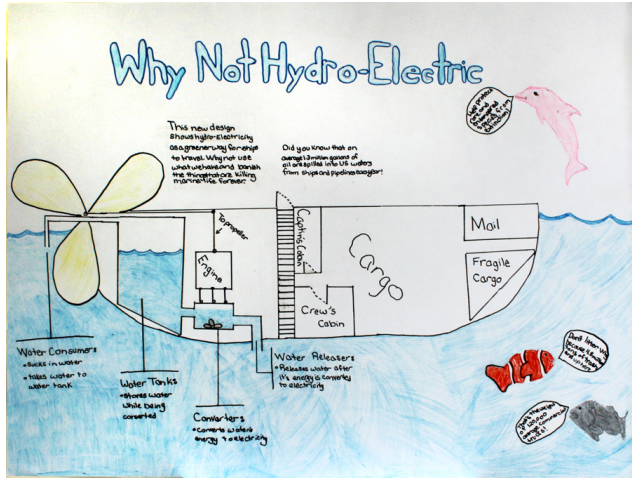 Why Not Hydro-Electric
This new design
Shows Hydro-Electricity
as a greener way for ships
to travel. Why not use
what we have and banish
the things that are killing
marine life forever.
Did you know that on
average 1.3 million gallons of
oil are spilled into US waters
from ships and pipelines each year!
Help protect
and
from
To propeller
Engine
Captin's Cabin
Cargo
Mail
Fragile
Cargo
Crew's
Cabin
Water Consumers
• Sucks in water
• takes water to
water tank
Water Tanks
• Stores water
while being
converted
Converters
• Converts water's
energy to electricity
Water Releasers
• Releases water after
it's energy is converted
to electricity
Don't litter
of
of 120,000
average